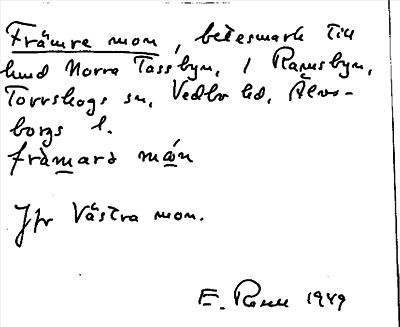 Främre mon, betesmark till
hmd Norra Tassbyn, 1 Ramsbyn,
Torrskogs sn, Vedbo hd, Älvs-
borgs l.
främara mǻn
Jfr Västra mon.
E. 1949